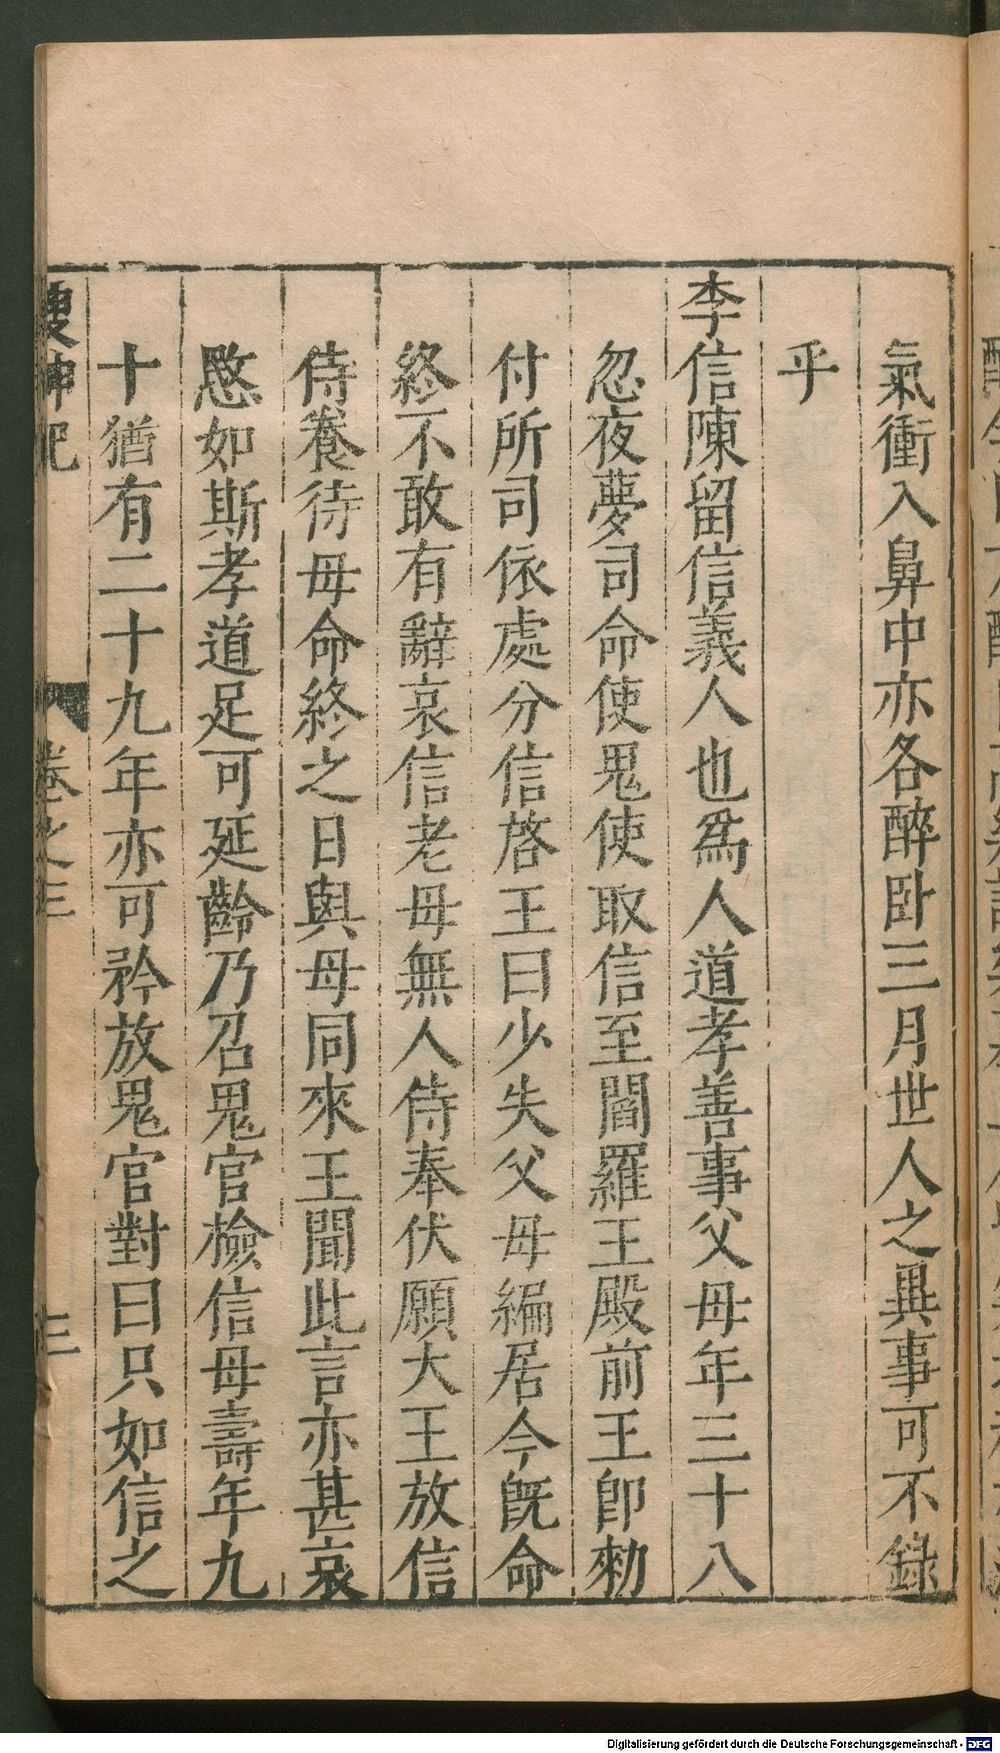 氣衝入鼻中亦各醉卧三月世人之異事可不錄
乎
李信陳留信義人也爲人道孝善事父母年三十八
忽夜夢司命使鬼使取信至閻羅王殿前王卽勑
付所司依處分信啓王曰少失父母編居今旣命
終不敢有辭哀信老母無人侍奉伏願大王放信
侍養待母命終之日與母同來王聞此言亦甚哀
愍如斯孝道足可延齡乃召鬼官檢信母壽年九
十猶有二十九年亦可矜放鬼官對曰只如信之
搜神記 卷之三 三
Digitalisierung gefördert durch die Deutsche Forschungsgemeinschaft - DFG